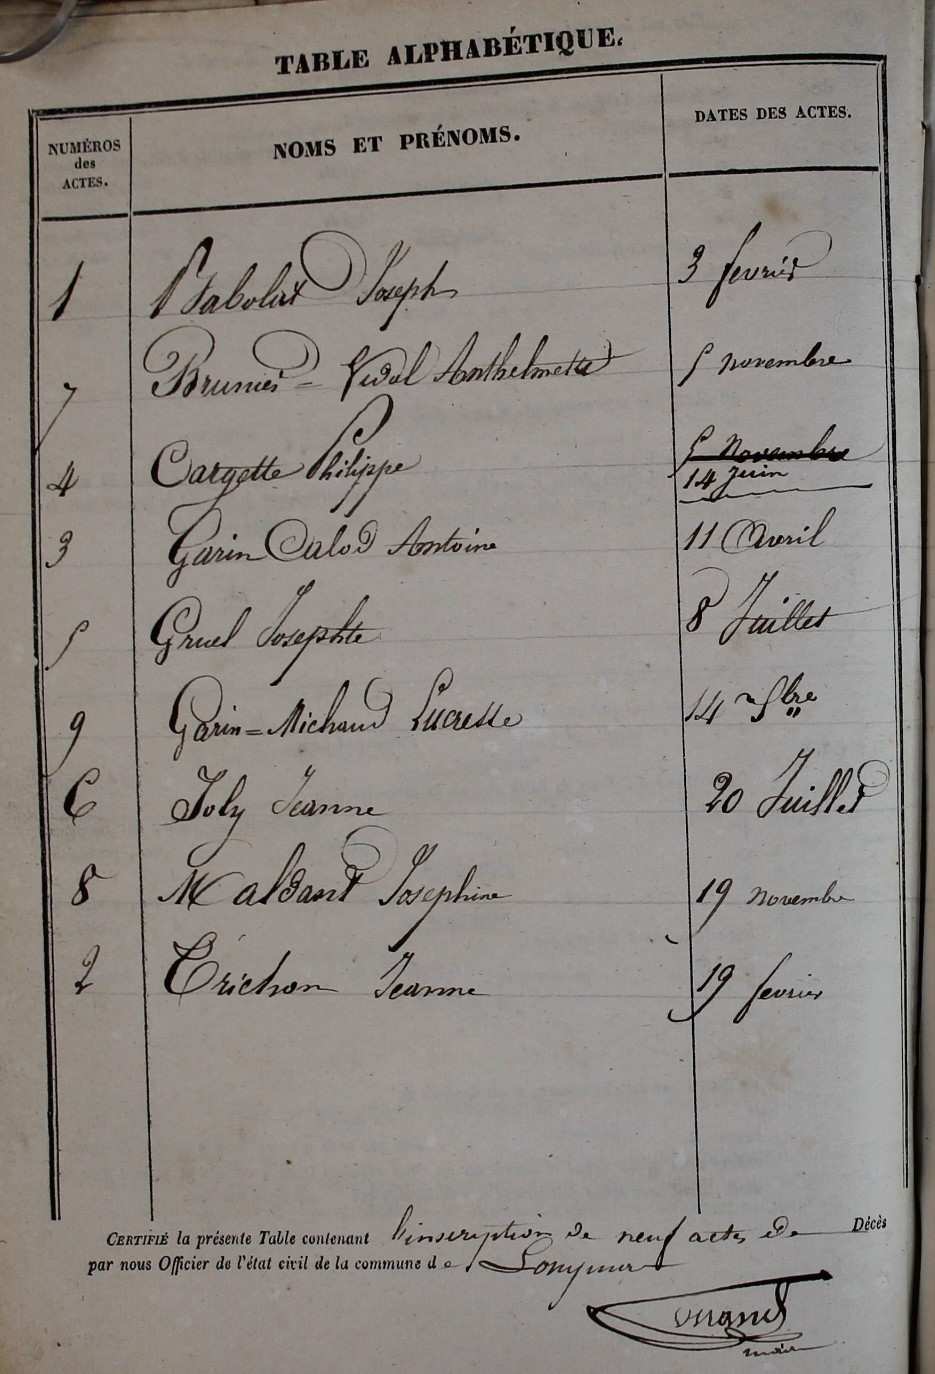 TABLE ALPHABÉTIQUE.
NUMÉROS des ACTES. NOMS ET PRÉNOMS. DATES DES ACTES.
1 Joseph 3 fevrier
7 Brunier = Vidal Anthelmette 5 novembre
4 Cargette Philippe 5 Novembre
14 Juin
3 Garin Calod Antoine 11 Avril
5 Gruel Josephte 8 Juillet
9 Garin = Michaud Lucresse 14 Xbre
6 Joly Jeanne 20 Juillet
8 Maldant Josephine 19 novembre
2 Trichon Jeanne 19 fevrier
CERTIFIÉ la présente Table contenant l'inscription de neuf actes de Décès
par nous Officier de l'état civil de la commune de
maire